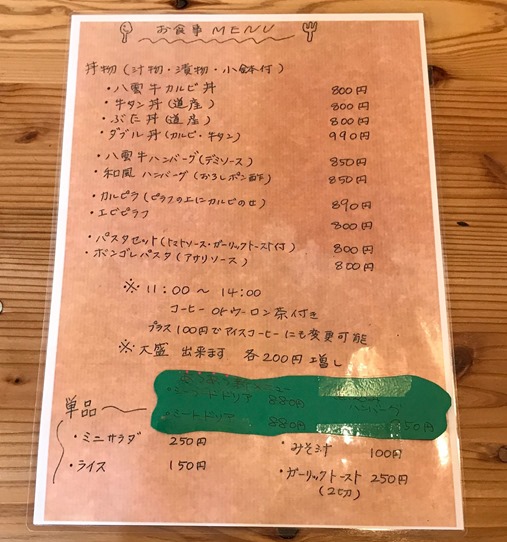 お食事 MENU
丼物(汁物・漬物・小鉢付)
・八雲牛カルビ丼 800円
・牛タン丼(道産) 800円
・ぶた丼(道産) 800円
・ダブル丼(カルビ・牛タン) 990円
・八雲牛ハンバーグ(デミソース) 850円
・和風ハンバーグ(おろしポン酢) 850円
・カルピラ(ピラフの上にカルビのせ) 890円
・エビピラフ 800円
・パスタセット(トマトソース・ガーリックトースト付) 800円
・ボンゴレパスタ(アサリソース) 800円
※ 11:00〜14:00
コーヒー orウーロン茶付き
プラス100円でアイスコーヒーにも変更可能
※ 大盛 出来ます 各200円増し
メニュー
ドリア 880円 ハンバーグ
・ミートドリア 880円 50円
単品
・ミニサラダ 250円
・みそ汁 100円
・ライス 150円
・ガーリックトースト 250円
(2切)